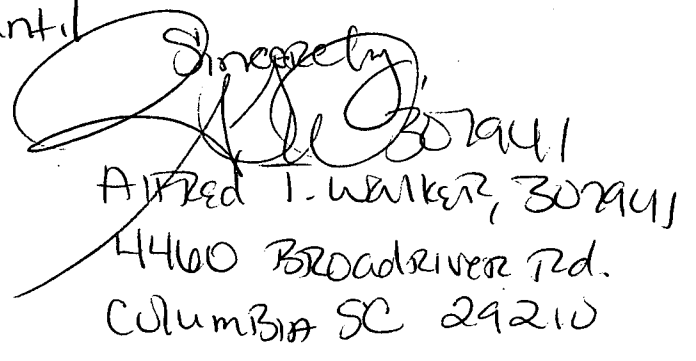 until
Sincerely,
307941
Alfred T. Walker, 307941
4460 Broadriver Rd.
Columbia SC 29210